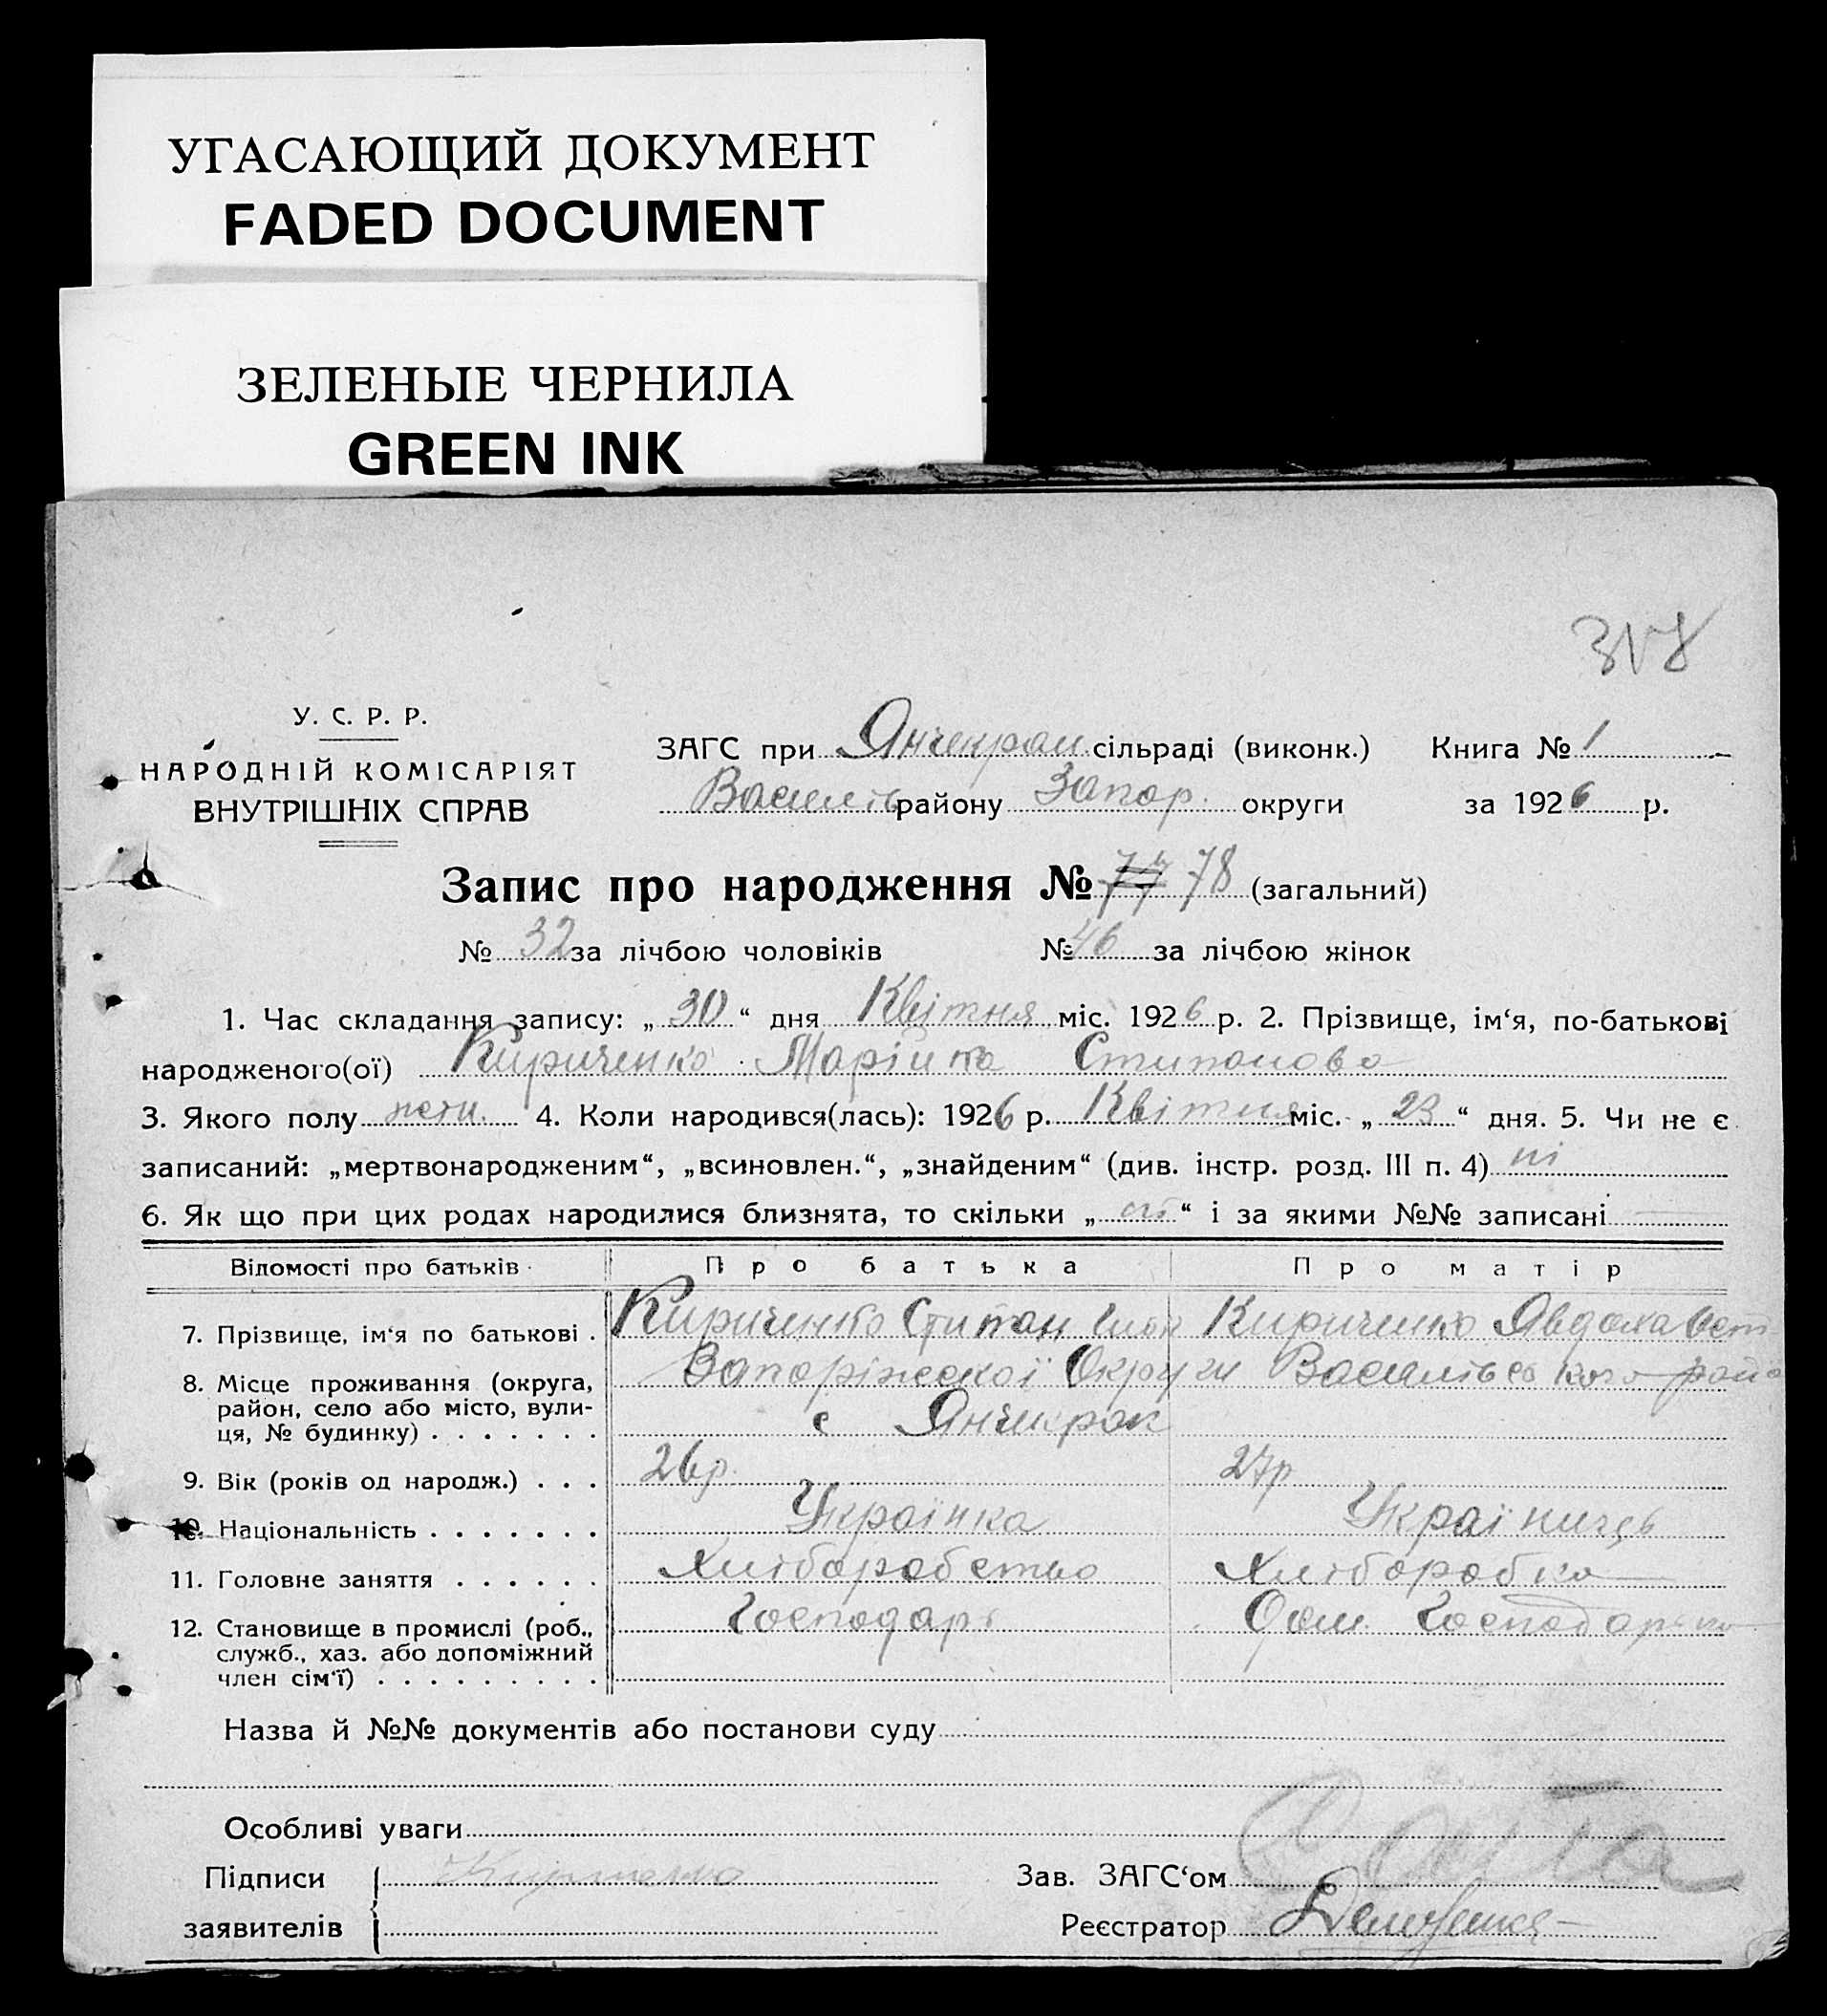 УГАСАЮЩИЙ ДОКУМЕНТ
FADED DOCUMENT
ЗЕЛЕНЫЕ ЧЕРНИЛА
GREEN INK
У. С. Р. Р.
НАРОДНІЙ КОМІСАРІЯТ
ВНУТРІШНІХ СПРАВ
ЗАГС при Янчекрак сільраді (виконк.) Книга № 1
Василів району Запор. округи за 1926 р.
Запис про народження № 77 78 (загальний)
№ 32 за лічбою чоловіків № 46 за лічбою жінок
1. Час складання запису: „ 30 “ дня Квітня міс. 1926 р. 2. Прізвище, ім‘я, по-батькові
народженого(ої) Кириченко Марійка Стипанова
3. Якого полу 4. Коли народився(лась): 1926 р. Квітня міс. „ 23 “ дня. 5. Чи не є
записаний: „мертвонародженим“, „всиновлен.“, „знайденим“ (див. інстр. розд. III п. 4) ні
6. Як що при цих родах народилися близнята, то скільки „ “ і за якими №№ записані
Відомості про батьків Про батька Про матір
7. Прізвище, ім‘я по батькові . Кириченко Стипан Кириченко Явдоха
8. Місце проживання (округа, Запоріжської Округи Василівського райо
район, село або місто, вули- с Янчикрак
ця, № будинку) . . . . . . .
9. Вік (років од народж.) . . . 26 р. 27 р
10. Національність . . . . . . . Українка Україниць
11. Головне заняття . . . . . . Хліборобство Хліборобка
12. Становище в промислі (роб., Господарь Дом. Господарька
служб., хаз. або допоміжний
член сім‘ї) . . . . . . . . .
Назва й №№ документів або постанови суду
Особливі уваги
Підписи Зав. ЗАГС‘ом
заявителів Реєстратор